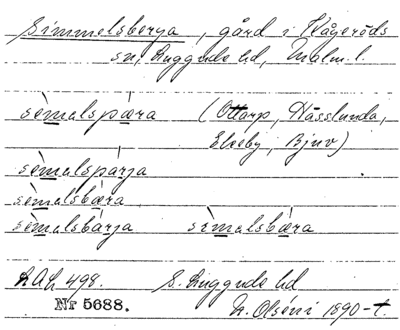 Simmelsberga, gård i Kågeröds
sn, Luggude hd, Malm. l.
sèmalspæra (Ottarp, Hässlunda,
Ekeby, Bjuv)
sèmalspàrja
sèmalsbæra
sèmalsbàrja sìmalsbæra
LAL 498. S. Luggude hd
Nr 5688. N. Olséni 1890-t.